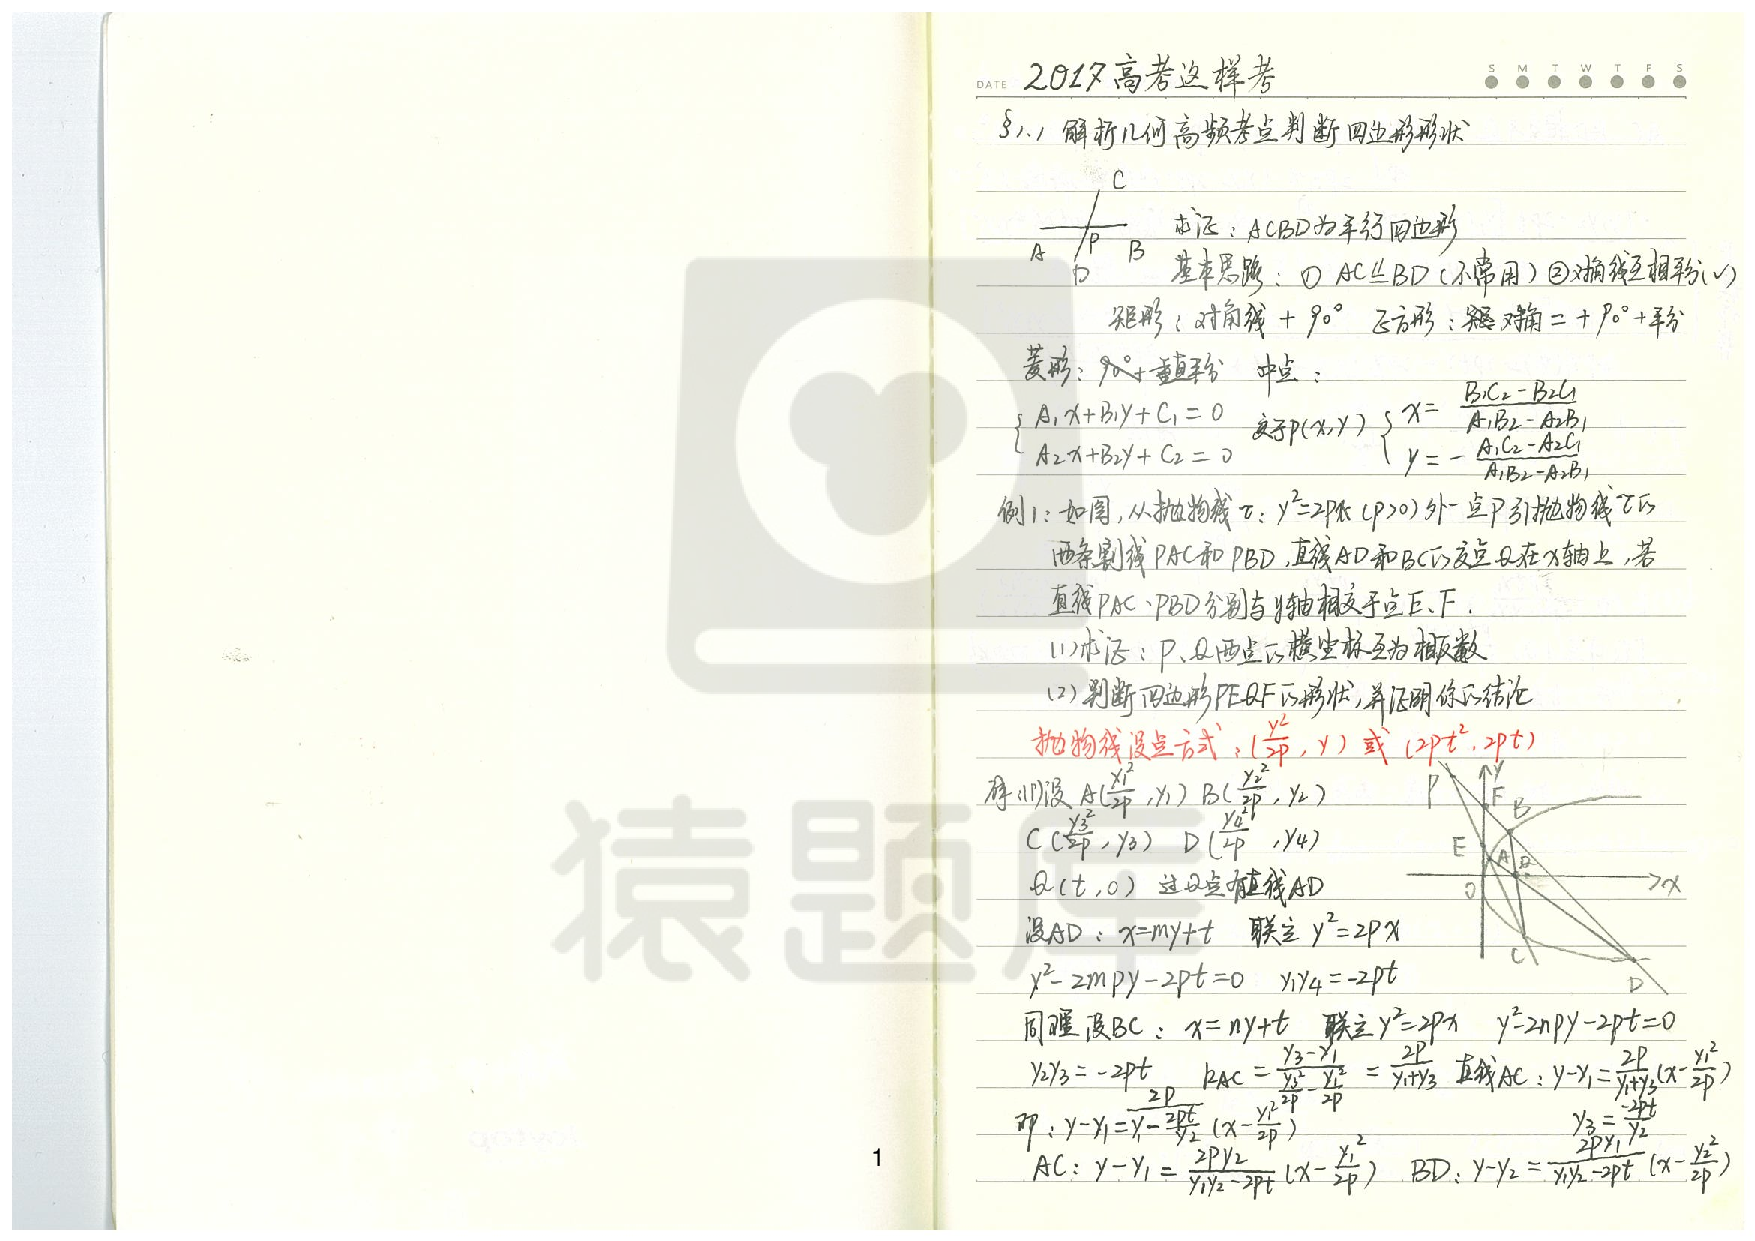 DATE 2017高考这样考 S M T W T F S
§1.1 解析几何高频考点判断四边形形状
C
A P B
D
求证：ACBD为平行四边形
基本思路：① AC∥BD（不常用）②对角线互相平分(√)
矩形：对角线 + 90° 正方形：矩 对角 = + 90° + 平分
菱形：90° + 垂直平分 中点：
{ A₁x+B₁y+C₁=0
A₂x+B₂y+C₂=0
交于P(x,y) { x= (B₁C₂-B₂C₁)/(A₁B₂-A₂B₁)
y=- (A₁C₂-A₂C₁)/(A₁B₂-A₂B₁)
例1：如图，从抛物线τ：y²=2px（p>0）外一点P引抛物线τ的
两条割线PAC和PBD，直线AD和BC的交点Q在x轴上，若
直线PAC、PBD分别与y轴相交于点E、F.
(1)求证：P、Q两点的横坐标互为相反数
(2)判断四边形PEQF的形状，并证明你的结论
抛物线设点方式：(y²/2p, y) 或 (2pt², 2pt)
解：(1)设 A(y₁²/2p, y₁) B(y₂²/2p, y₂)
C(y₃²/2p, y₃) D(y₄²/2p, y₄)
Q(t,0) 过Q点有直线AD
设AD：x=my+t 联立 y²=2px
y²-2mpy-2pt=0 y₁y₄=-2pt
P y F B E A Q O x C D
同理设BC：x=ny+t 联立y²=2px y²-2npy-2pt=0
y₂y₃=-2pt kAC=(y₃-y₁)/(y₃²/2p-y₁²/2p)=2p/(y₁+y₃) 直线AC：y-y₁=2p/(y₁+y₃)(x-y₁²/2p)
即：y-y₁=2p/(y₁-2pt/y₂)(x-y₁²/2p) y₃=-2pt/y₂
AC：y-y₁=2py₂/(y₁y₂-2pt)(x-y₁²/2p) BD：y-y₂=2py₁/(y₁y₂-2pt)(x-y₂²/2p)
1
猿题库